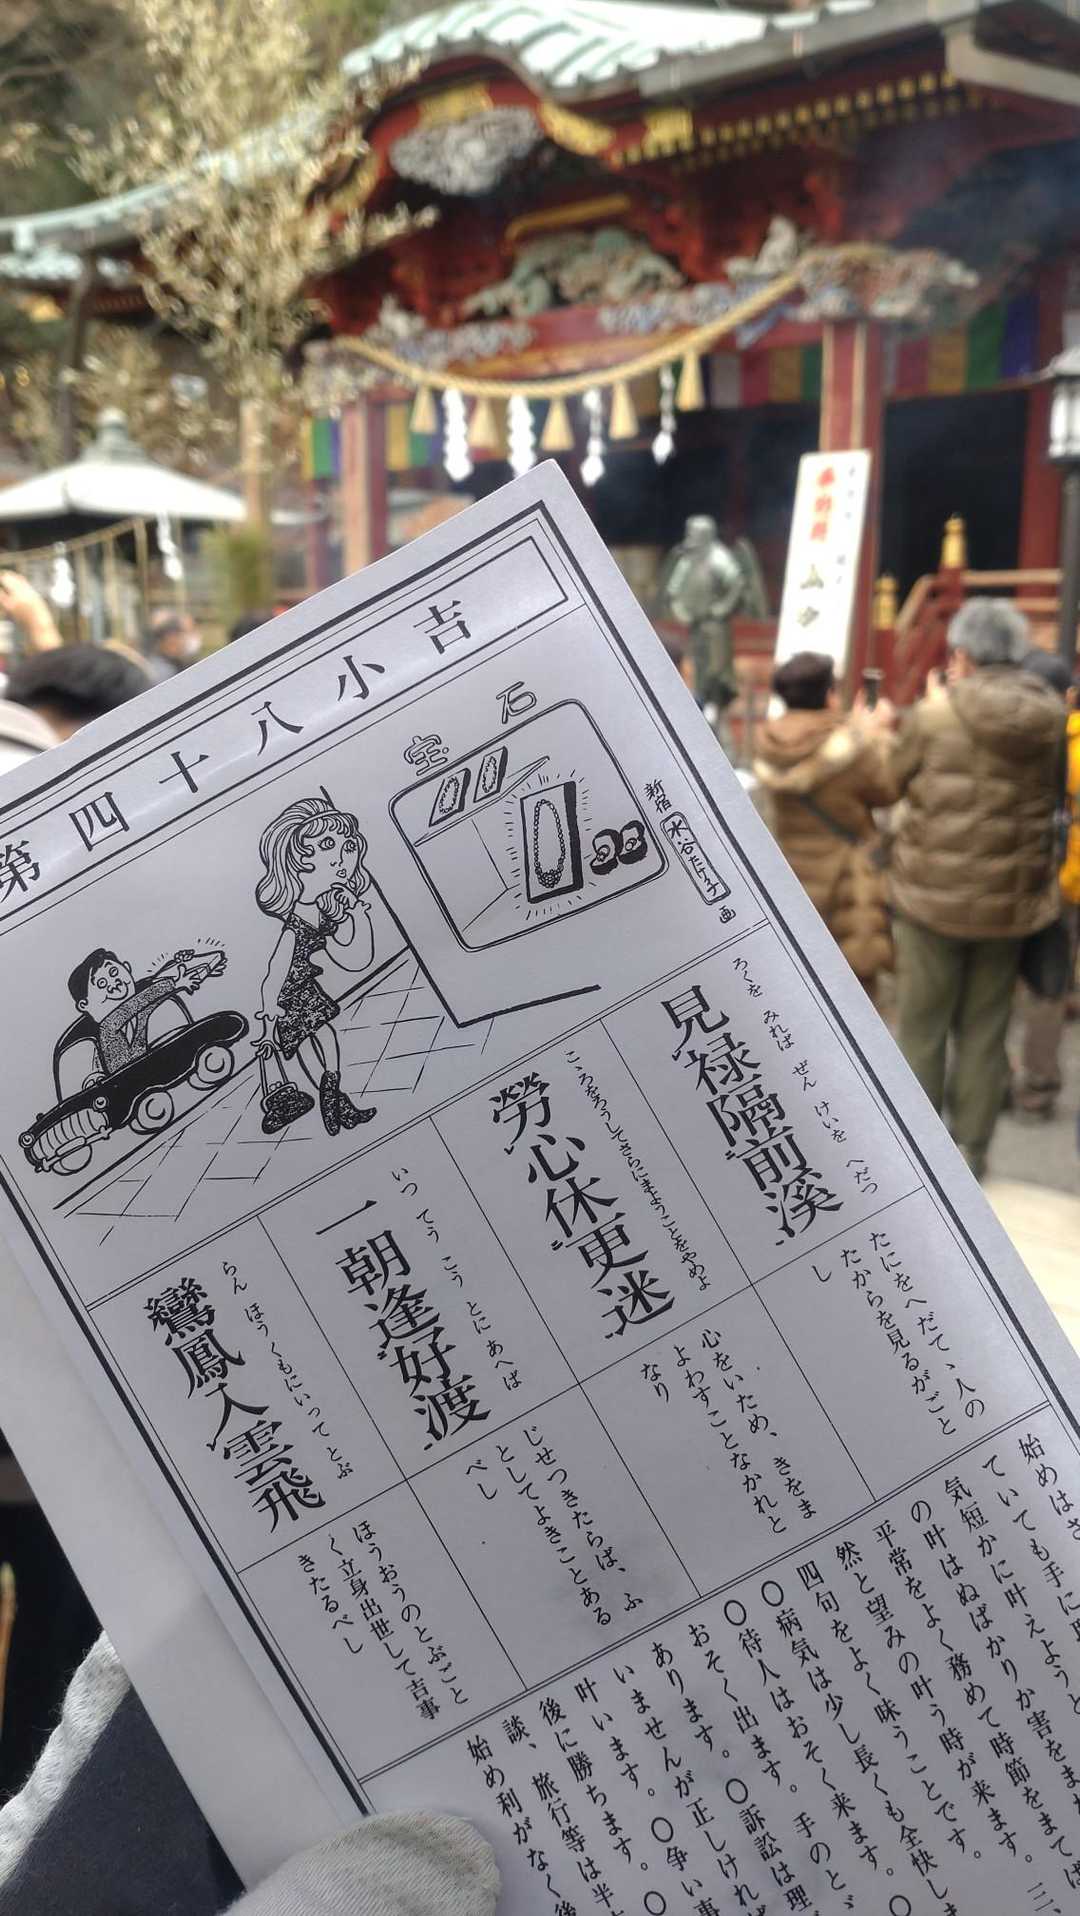 第四十八小吉
宝石
新宿 水谷たけ子 画
ろくを みれば ぜん けいを へだつ
見禄隔前溪
たにをへだて、人の
たからを見るがごと
し
こゝろをろうしてさらにまようことをやめよ
勞心休更迷
心をいため、きをま
よわすことなかれと
なり
いつ てう こう とに あへば
一朝逢好渡
じせつきたらば、ふ
としてよきことある
べし
らん ほうくもにいつて とぶ
鸞鳳入雲飛
ほうおうのとぶごと
く立身出世して吉事
きたるべし
始めはさ
ていても手に
気短かに叶えようと
の叶はぬばかりか害をま
平常をよく務めて時節をまてば
然と望みの叶う時が来ます。三、
四句をよく味うことです。
〇病気は少し長くも全快しま
〇待人はおそく来ます。〇
おそく出ます。手のとゞ
あります。〇訴訟は理
いませんが正しければ
叶います。〇争い事
後に勝ちます。〇
談、旅行等は半
始め利がなく後